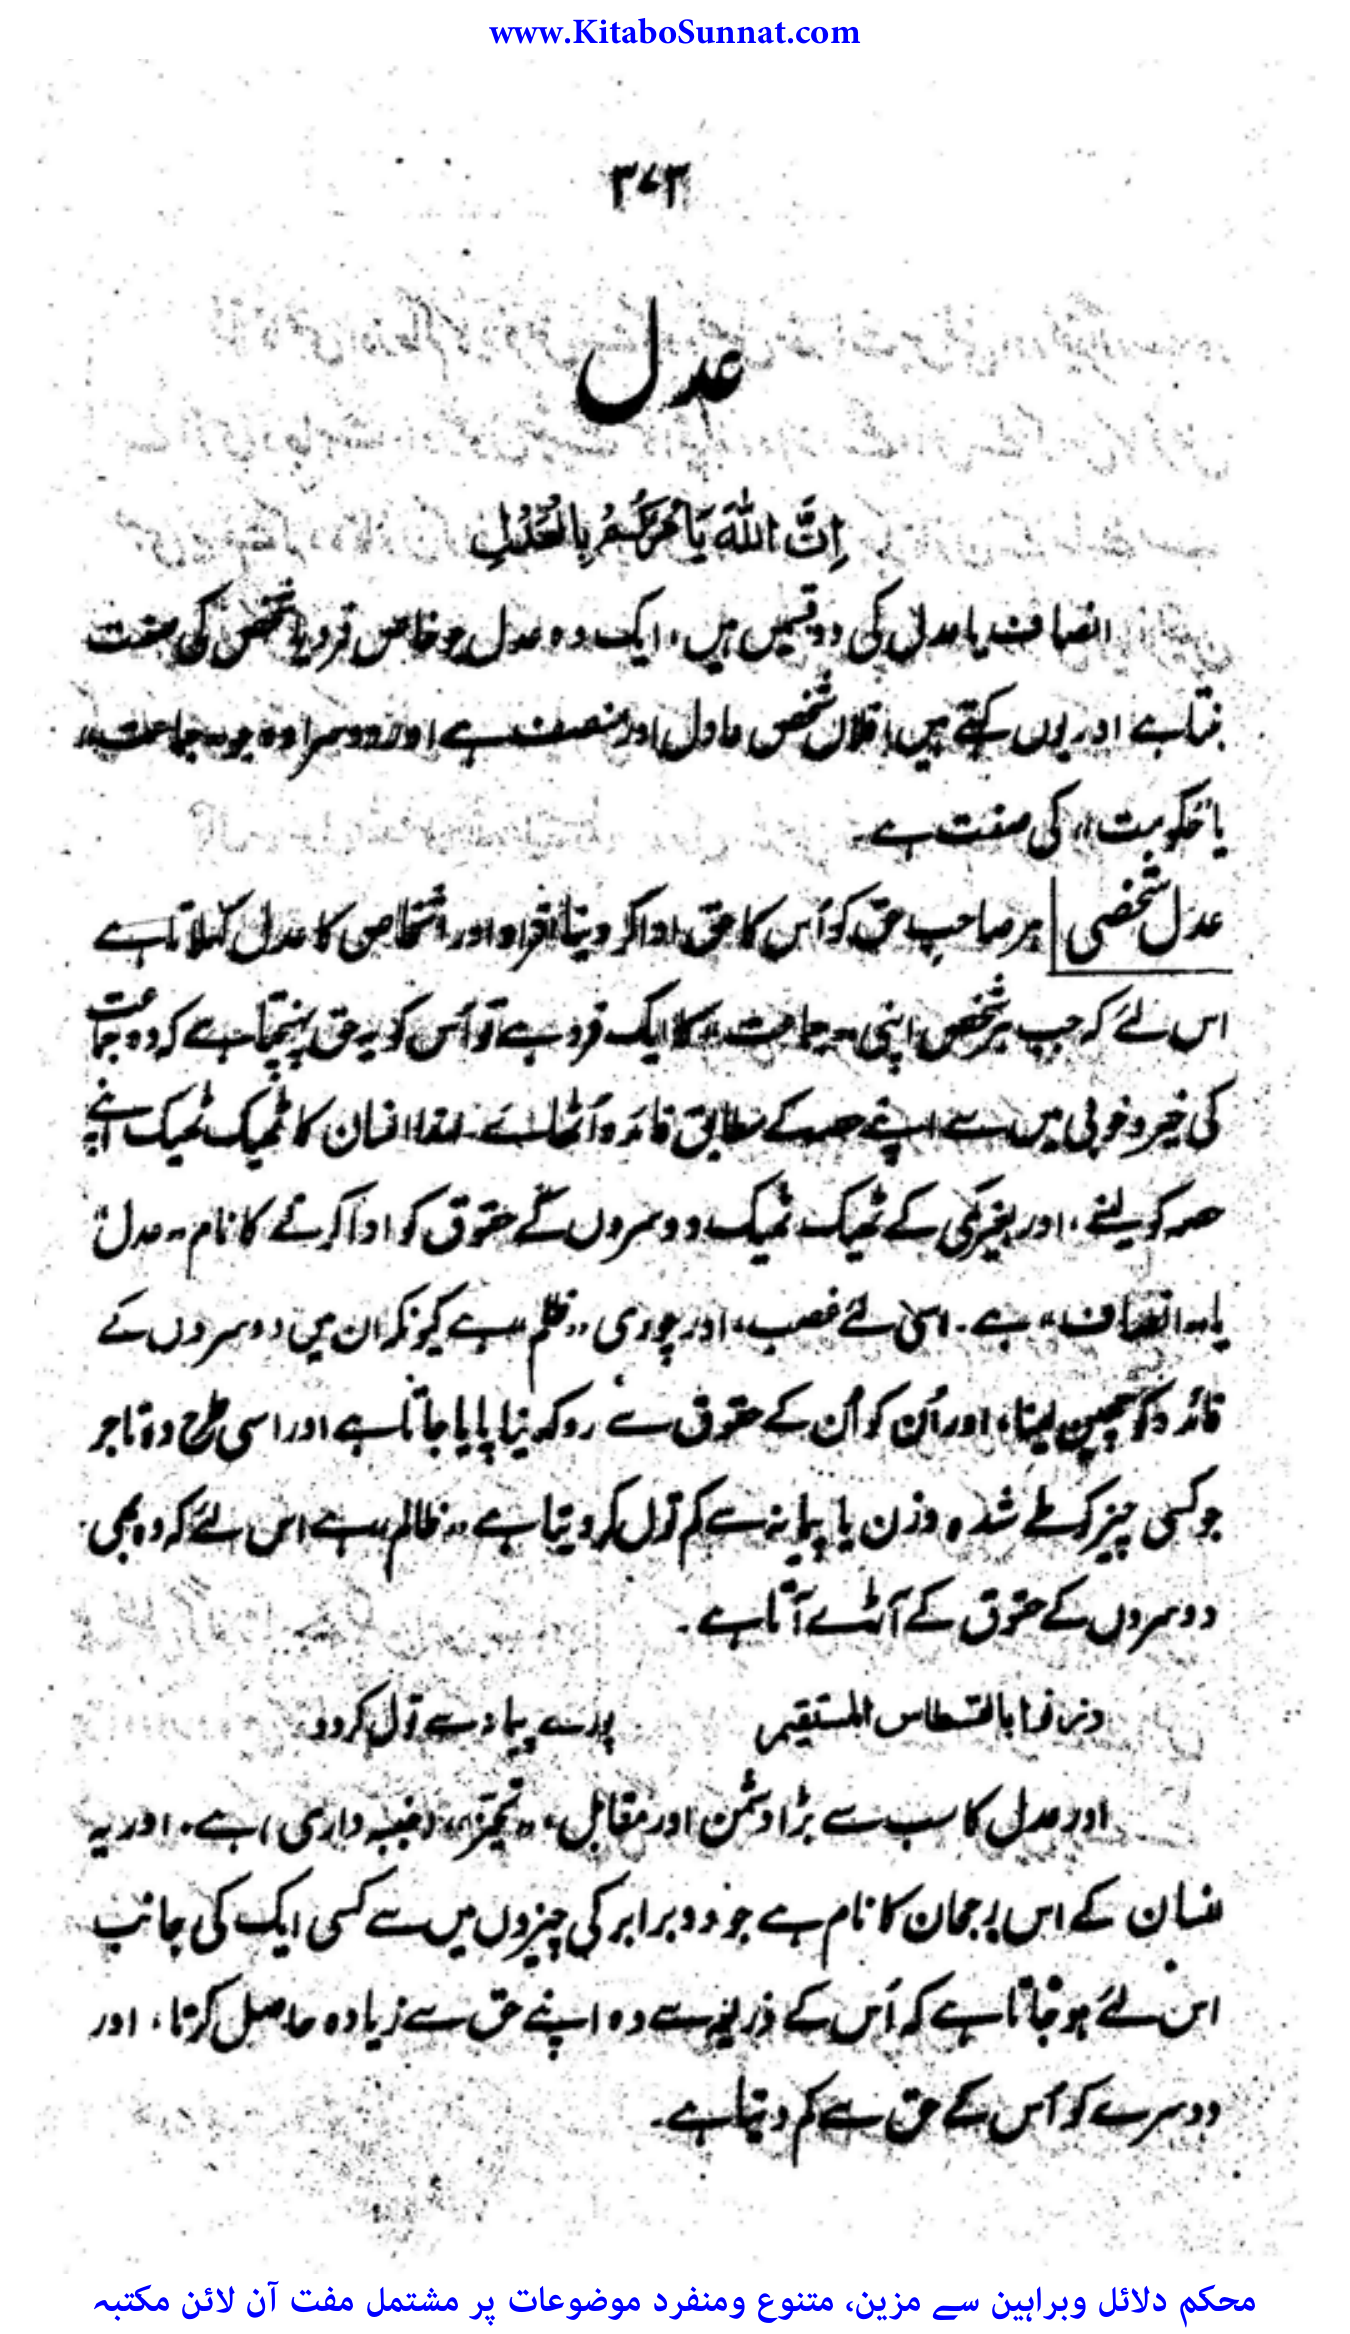 www.KitaboSunnat.com
۳۷۳
عدل
اِنَّ اللّٰہَ یَأمُرُکُمْ بِالْعَدْلِ
انصاف یا عدل کی دو قسمیں ہیں، ایک وہ عدل جو خاص فرد یا شخص کی صفت
بنتا ہے اور یوں کہتے ہیں فلاں شخص عادل اور منصف ہے اور دوسرا وہ جو "جماعت"
یا "حکومت" کی صفت ہے۔
عدل شخصی | ہر صاحبِ حق کو اُس کا حق ادا کر دینا افراد اور اشخاص کا عدل کہلاتا ہے
اس لئے کہ جب ہر شخص اپنی "جماعت" کا ایک فرد ہے تو اُس کو یہ حق پہنچتا ہے کہ وہ جماعت
کی خیر و خوبی میں سے اپنے حصہ کے مطابق فائدہ اُٹھائے۔ لہذا انسان کا ٹھیک ٹھیک اپنے
حصہ کو لینے، اور بغیر کمی کے ٹھیک ٹھیک دوسروں کے حقوق کو ادا کرنے کا نام "عدل"
یا "انصاف" ہے۔ اسی لئے غصب، اور چوری "ظلم" ہے کیونکہ ان میں دوسروں کے
فائدہ کو چھین لینا، اور اُن کو اُن کے حقوق سے روکدینا پایا جاتا ہے اور اسی طرح وہ تاجر
جو کسی چیز کو طے شدہ وزن یا پیمانہ سے کم تول کر دیتا ہے "ظالم" ہے اس لئے کہ وہ بھی
دوسروں کے حقوق کے آڑے آتا ہے۔
وزنوا بالقسطاس المستقیم پورے پیمانہ سے تول کر دو۔
اور عدل کا سب سے بڑا دشمن اور مقابل، "تحیّز" (جنبہ داری) ہے۔ اور یہ
انسان کے اس رجحان کا نام ہے جو دو برابر کی چیزوں میں سے کسی ایک کی جانب
اس لئے ہو جاتا ہے کہ اُس کے ذریعہ سے وہ اپنے حق سے زیادہ حاصل کرتا، اور
دوسرے کو اُس کے حق سے کم دیتا ہے۔
محکم دلائل وبراہین سے مزین، متنوع ومنفرد موضوعات پر مشتمل مفت آن لائن مکتبہ